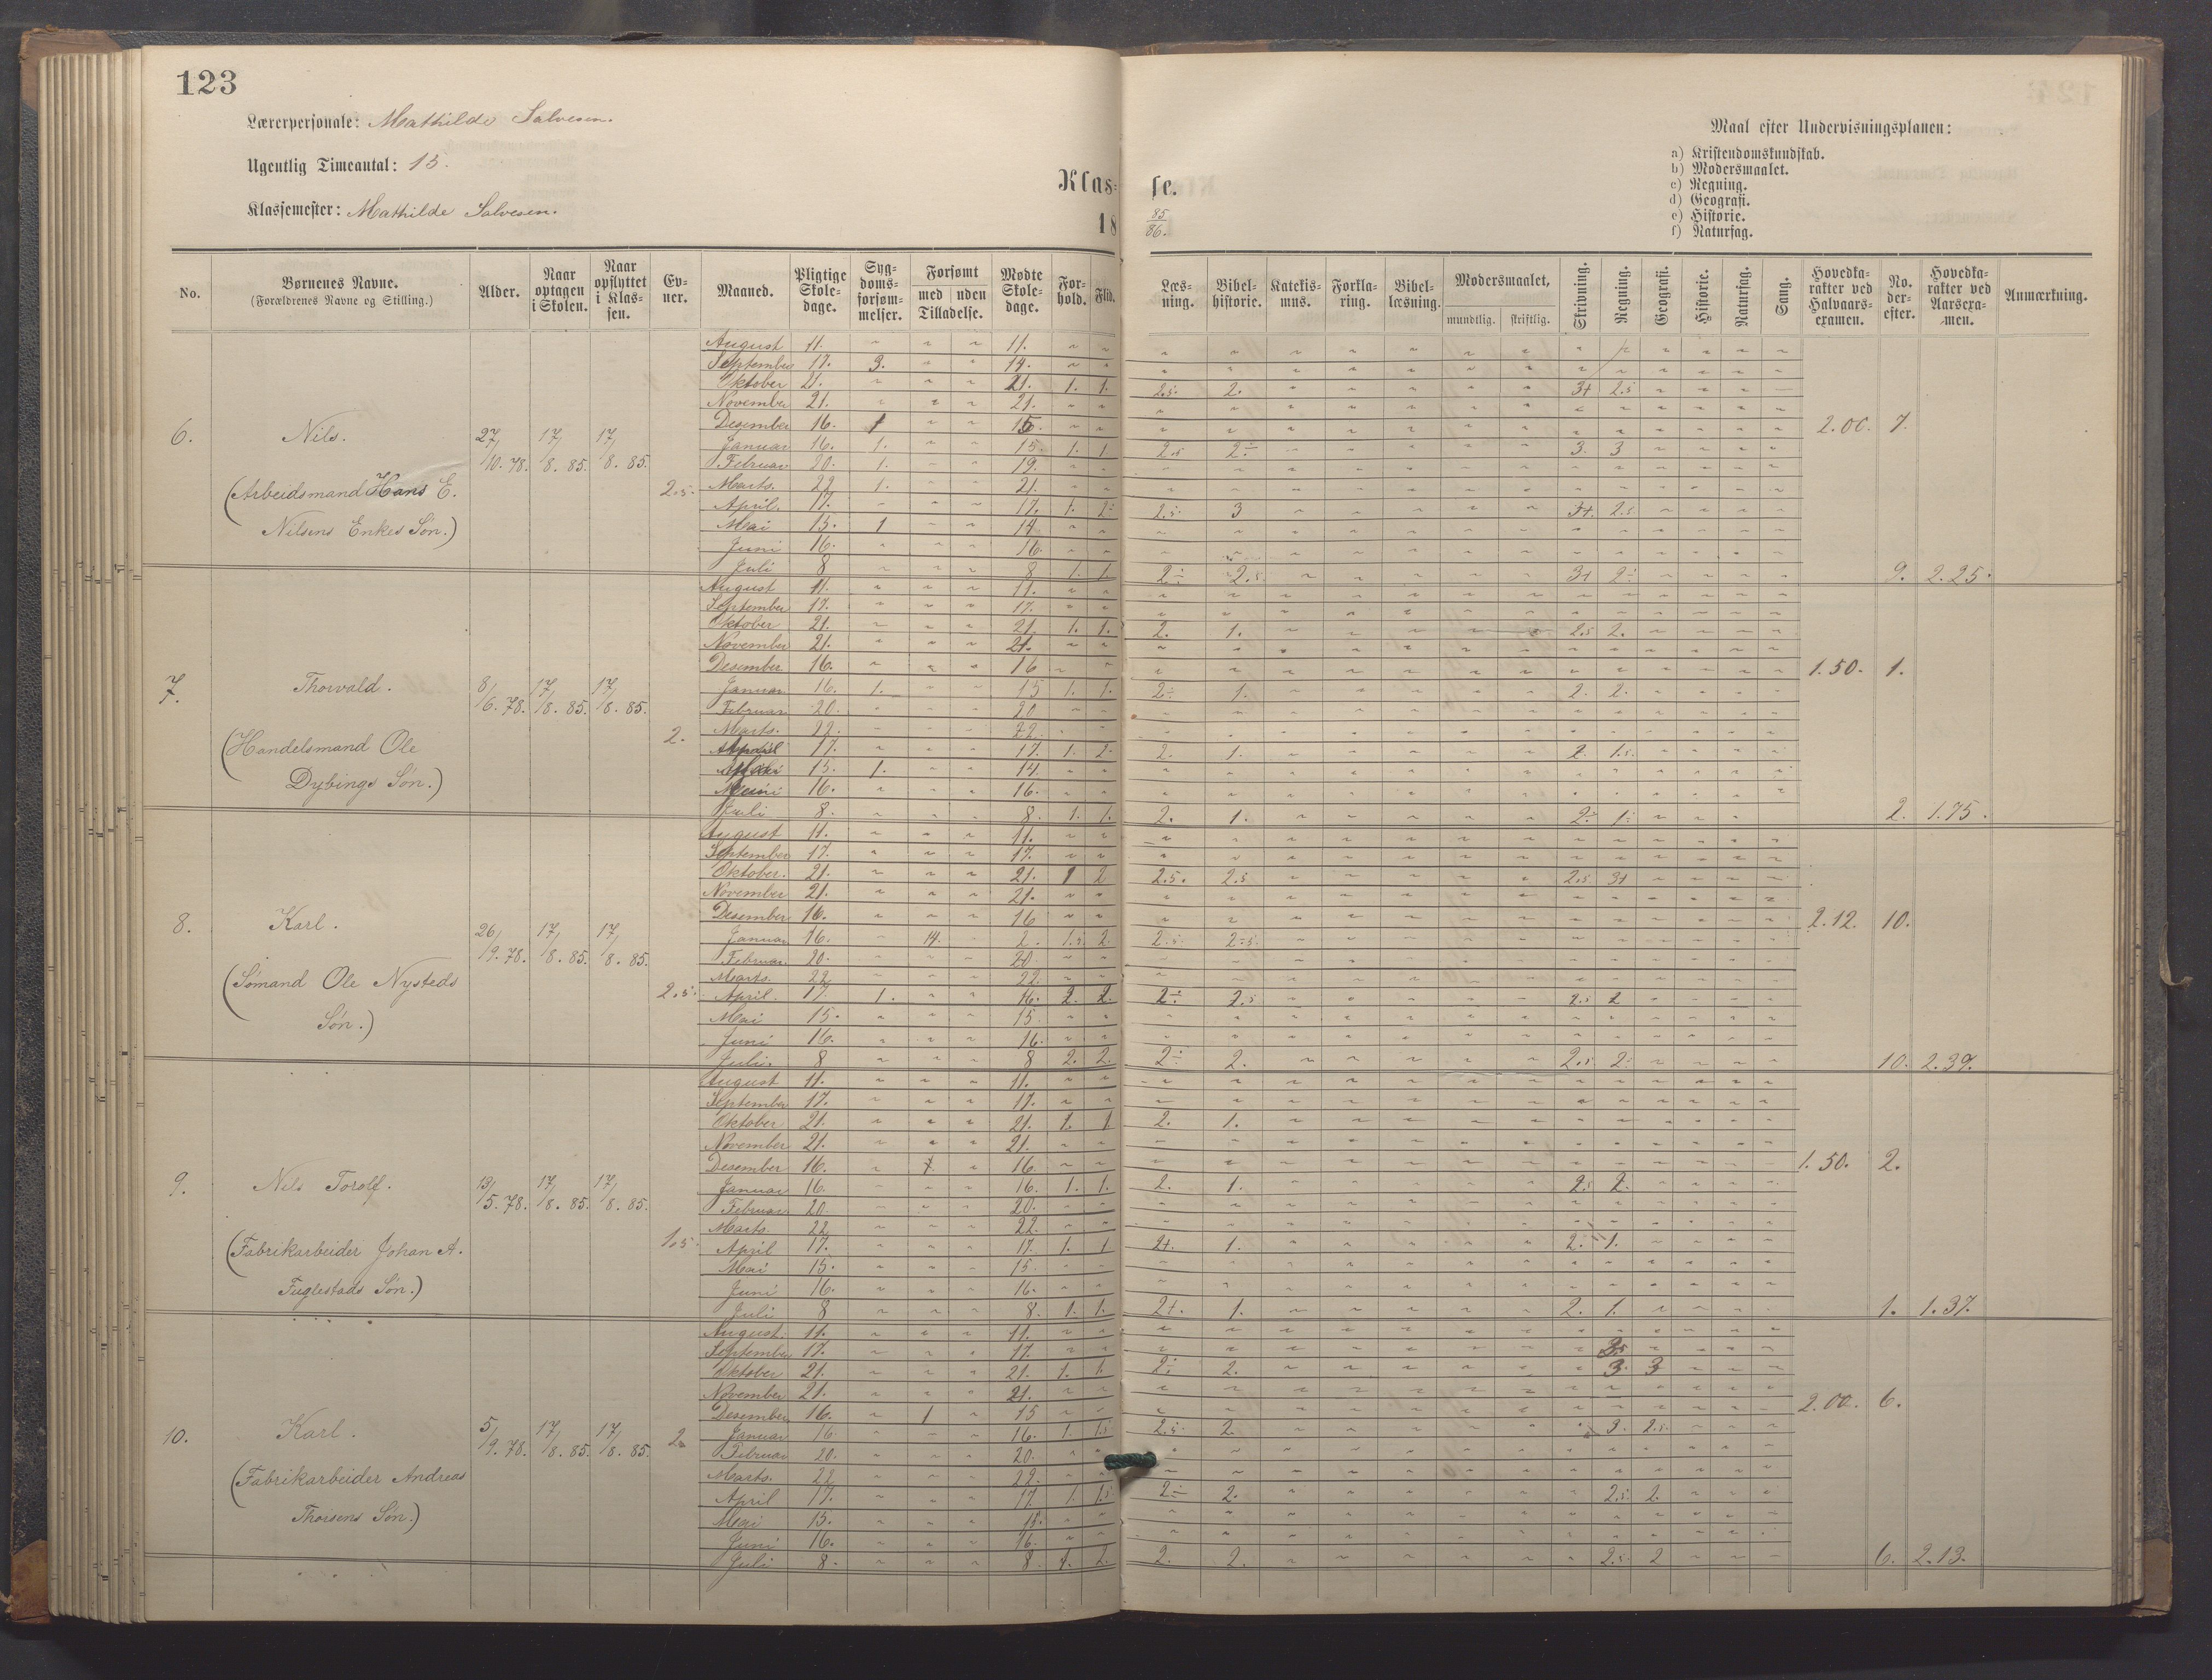 123
Lærerpersonale: Mathilde Salvesen.
Ugentlig Timeantal: 15.
Klassemester: Mathilde Salvesen.
Klasse.
18 85/86.
Maal efter Undervisningsplanen:
a) Kristendomskundskab.
b) Modersmaalet.
c) Regning.
d) Geografi.
e) Historie.
f) Naturfag.
No. Børnenes Navne. (Forældrenes Navne og Stilling.) Alder. Naar optagen i Skolen. Naar opflyttet i Klassen. Evner. Maaned. Pligtige Skoledage. Sygdomsforsømmelser. Forsømt med uden Tilladelse. Mødte Skoledage. Forhold. Flid. Læsning. Bibelhistorie. Katekismus. Forklaring. Bibellæsning. Modersmaalet, mundtlig. skriftlig. Skrivning. Regning. Geografi. Historie. Naturfag. Sang. Hovedkarakter ved Halvaarsexamen. No. derefter. Hovedkarakter ved Aarsexamen. Anmærkning.
6. Nils. 27/10.78. 17/8.85. 17/8.85. 2.5.
(Arbeidsmand Hans E.
Nilsens Enkes Søn.)
August 11. 11.
September 17. 3. 14.
Oktober 21. 21. 1. 1. 2.5. 2. 3+ 2.5
November 21. 21.
Desember 16. 2.00. 7.
Januar 16. 1. 15. 1. 1 2.5 2÷ 3. 3
Februar 20. 1. 19.
Marts. 22 1. 21.
April. 17. 17. 1. 2.5. 3 2.5
Mai 15. 1 14
Juni 16. 16.
Juli 8 8 1. 1. 2÷ 2.5 3+ 2÷ 9. 2.25.
7. Thorvald. 8/6.78. 17/8.85. 17/8.85. 2.
(Handelsmand Ole
Dybings Søn.)
August 11. 11.
September 17. 17.
Oktober 21. 21. 1. 1. 2. 1. 2.5 2.
November 21. 21.
Desember 16. 16 1.50. 1.
Januar 16. 1. 15 1. 1. 2÷ 1. 2. 2.
Februar 20. 20
Marts. 22. 22.
April 17. 17. 1. 2. 2. 1. 2. 1.5.
Mai 15. 1. 14.
Juni 16. 16.
Juli 8. 8. 1. 1. 2. 1. 2÷ 1÷ 2. 1.75.
8. Karl. 26/9.78. 17/8.85. 17/8.85. 2.5.
(Sømand Ole Nysteds
Søn.)
August 11. 11.
September 17. 17.
Oktober. 21. 21. 1 2 2.5. 2.5 2.5 3+
November 21. 21.
Desember 16. 16 2.12. 10.
Januar 16. 14. 2. 1.5 2. 2.5. 2.5.
Februar. 20. 20
Marts. 22 22
April. 17. 1. 16. 2. 2. 2÷ 2.5 2.5 2
Mai 15. 15.
Juni 16. 16.
Juli. 8 8 2. 2. 2÷ 2. 2.5 2÷ 10. 2.39.
9. Nils Torolf. 13/5.78. 17/8.85. 17/8.85. 1.5.
(Fabrikarbeider Johan A.
Fuglestads Søn.)
August 11. 11.
September 17. 17.
Oktober 21. 21. 1. 1 2. 1.
November 21. 21.
Desember 16. 16. 1.50. 2.
Januar 16. 16. 1. 1. 2. 1. 2.5 2.
Februar 20. 20.
Marts. 22 22.
April 17. 17. 1. 1 2+. 1. 2. 1.
Mai 15. 15.
Juni 16. 16.
Juli 8 8. 1. 1. 2+. 1. 2. 1. 1. 1.37.
10. Karl. 5/9.78. 17/8.85. 17/8.85. 2
(Fabrikarbeider Andreas
Thorsens Søn.)
August. 11. 11.
September 17. 17.
Oktober 21. 21. 1. 1. 2÷ 2. 3. 3
November 21. 21.
Desember 16. 1 15 2.00. 6.
Januar 16. 16. 1. 1.5 2.5. 2. 3. 2.5.
Februar 20. 20.
Marts. 22 22.
April 17. 17. 1. 1.5 2÷ 2. 2.5. 2.
Mai 15. 15.
Juni 16. 16.
Juli 8. 8. 1. 2. 2. 2. 2.5. 2 6. 2.13.